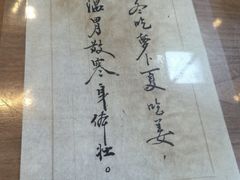 冬吃萝卜夏吃姜，
温胃散寒身体壮。